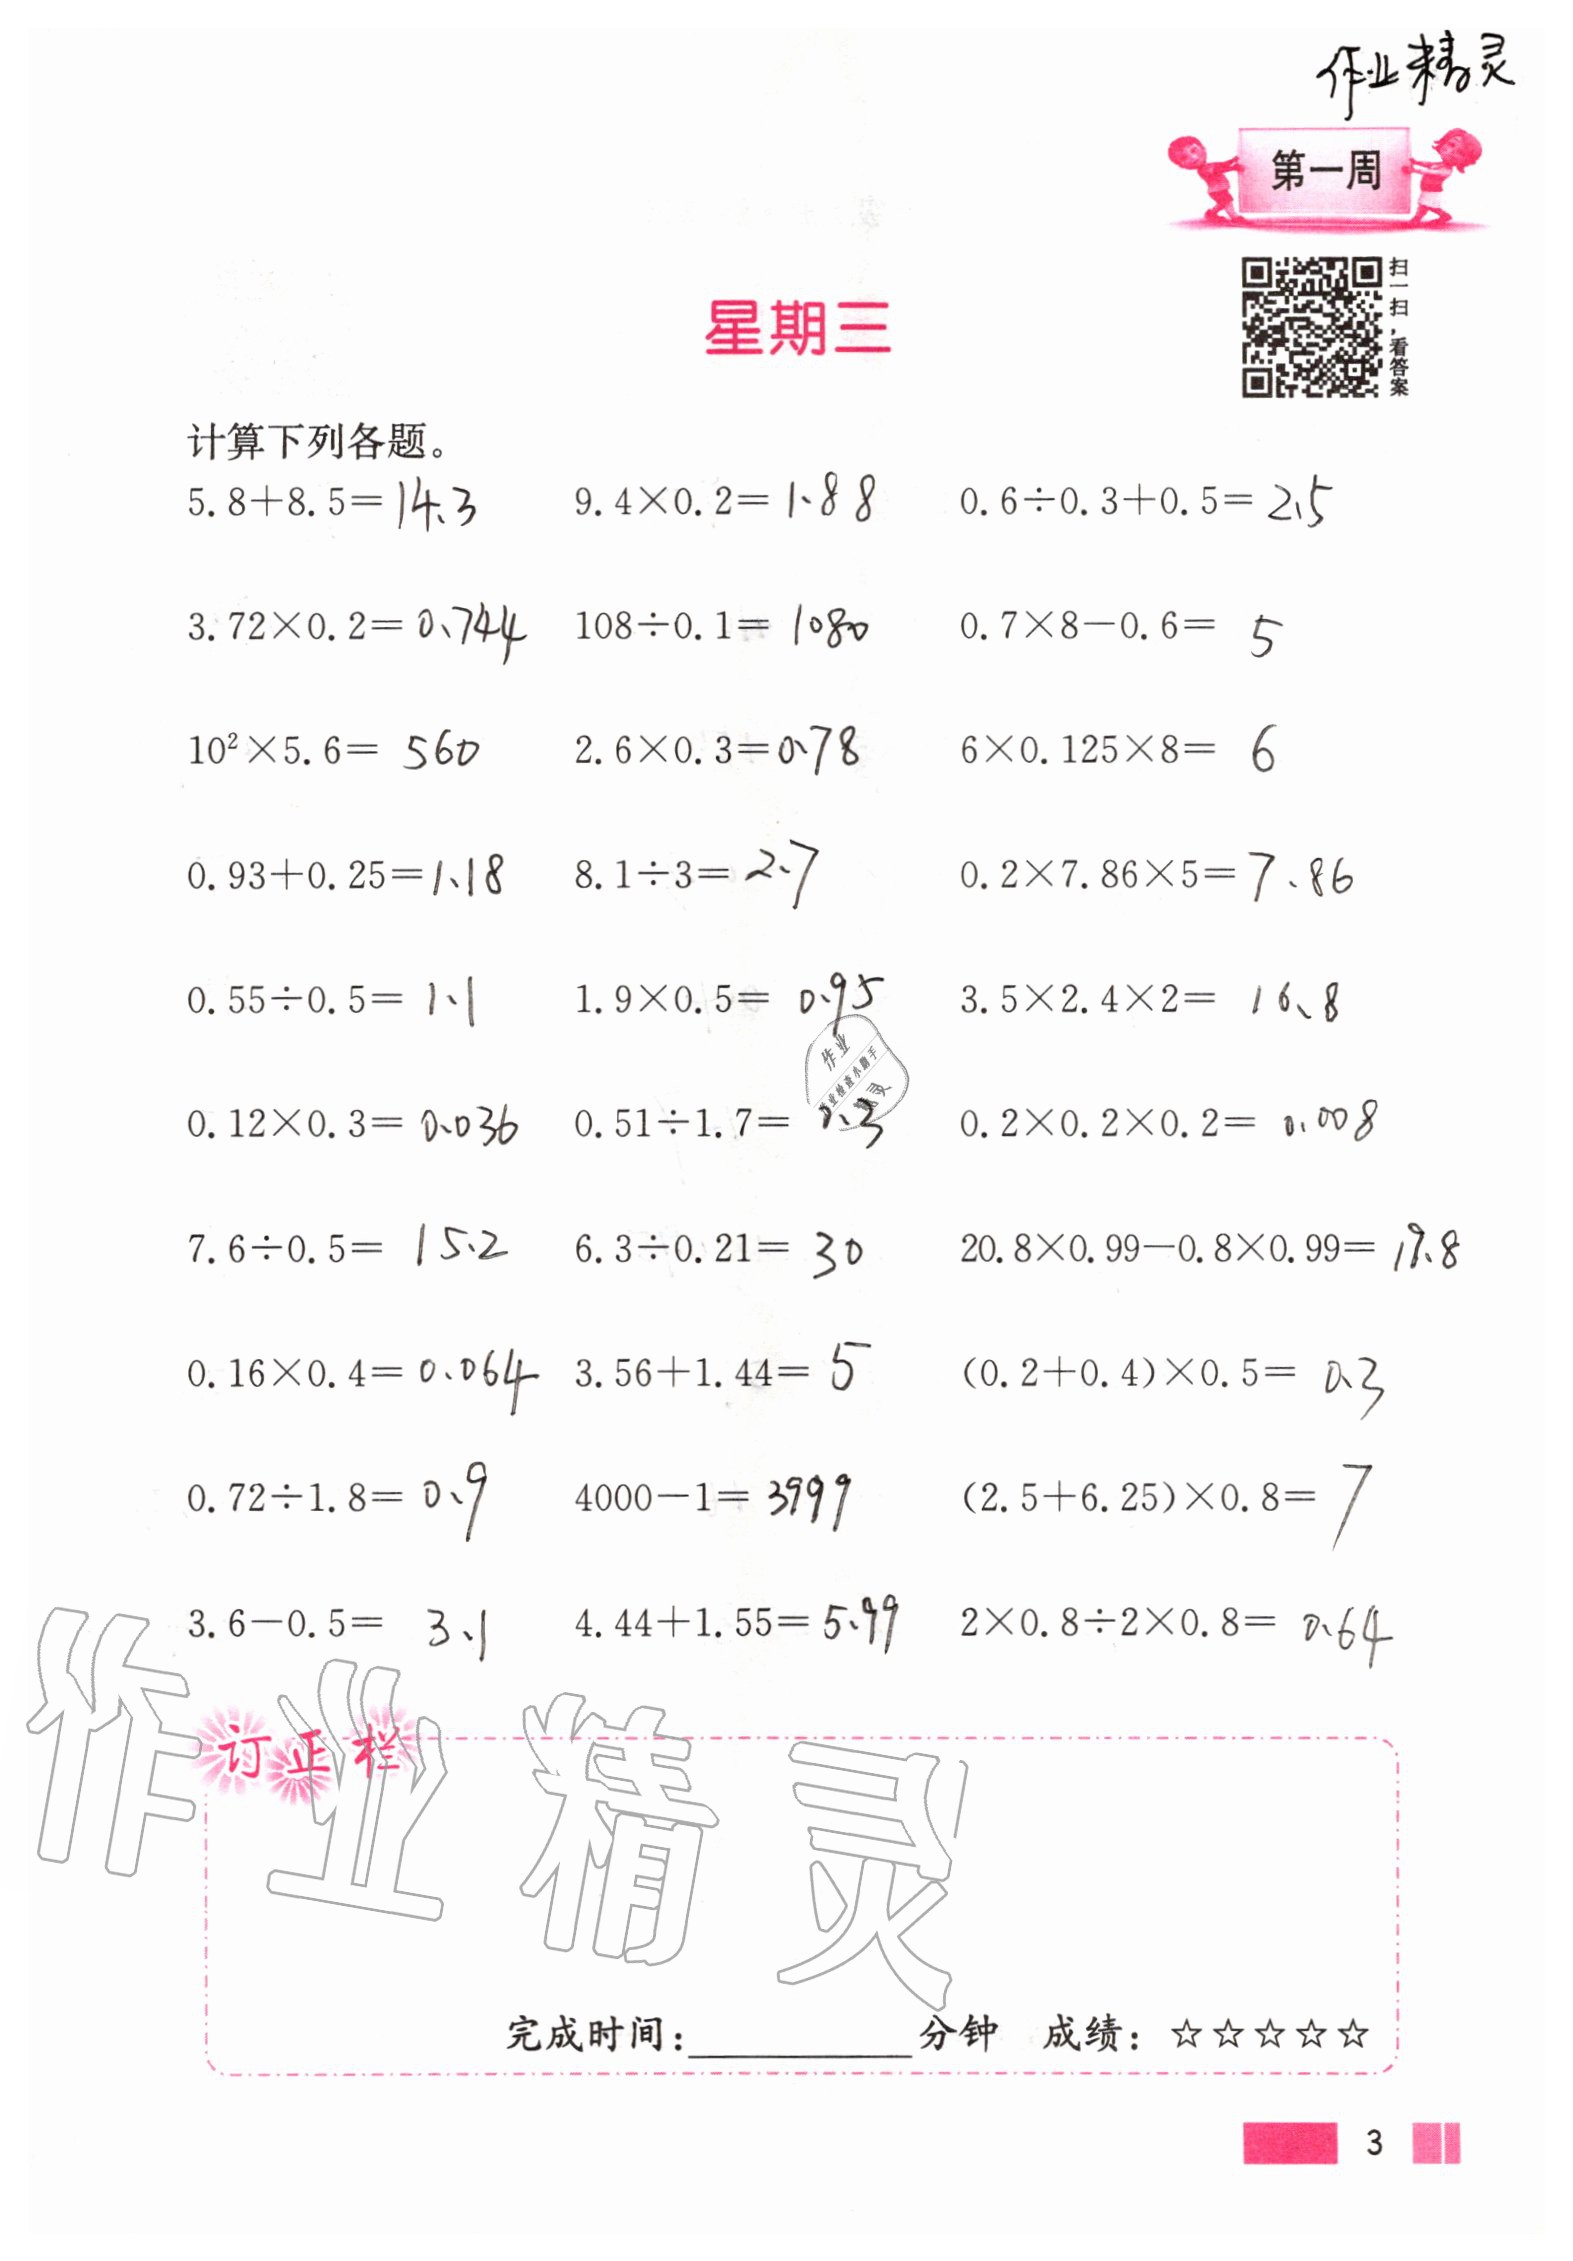 作业精灵
第一周
扫一扫,看答案
星期三
计算下列各题。
5.8+8.5=14.3 9.4×0.2=1.88 0.6÷0.3+0.5=2.5
3.72×0.2=0.744 108÷0.1=1080 0.7×8-0.6=5
10²×5.6=560 2.6×0.3=0.78 6×0.125×8=6
0.93+0.25=1.18 8.1÷3=2.7 0.2×7.86×5=7.86
0.55÷0.5=1.1 1.9×0.5=0.95 3.5×2.4×2=16.8
作业
作业检查小助手
精灵
0.12×0.3=0.036 0.51÷1.7=0.3 0.2×0.2×0.2=0.008
7.6÷0.5=15.2 6.3÷0.21=30 20.8×0.99-0.8×0.99=19.8
0.16×0.4=0.064 3.56+1.44=5 (0.2+0.4)×0.5=0.3
0.72÷1.8=0.9 4000-1=3999 (2.5+6.25)×0.8=7
3.6-0.5=3.1 4.44+1.55=5.99 2×0.8÷2×0.8=0.64
作业精灵
订正栏
完成时间:__________分钟 成绩:☆☆☆☆☆
3